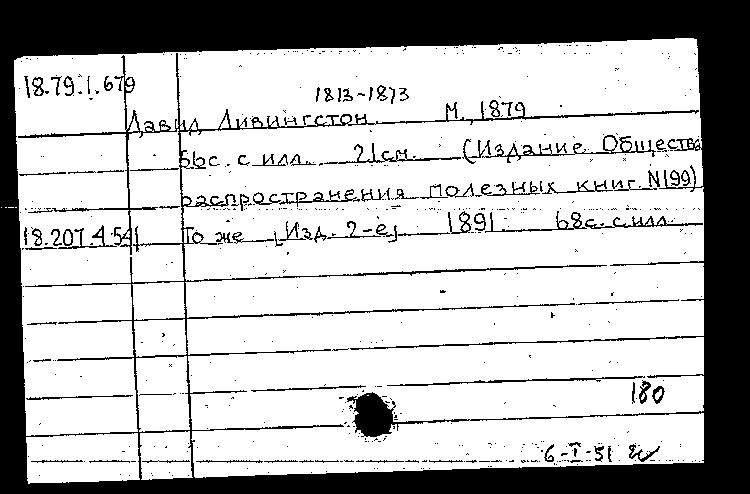 18.79.1.679
1813-1873
Давид Ливингстон. М., 1879
56с. с илл. 21см. (Издание Общества
распространения полезных книг. N199)
18.207.4.541 То же [Изд. 2-е] 1891. 68с. с илл.
180
6-I-51